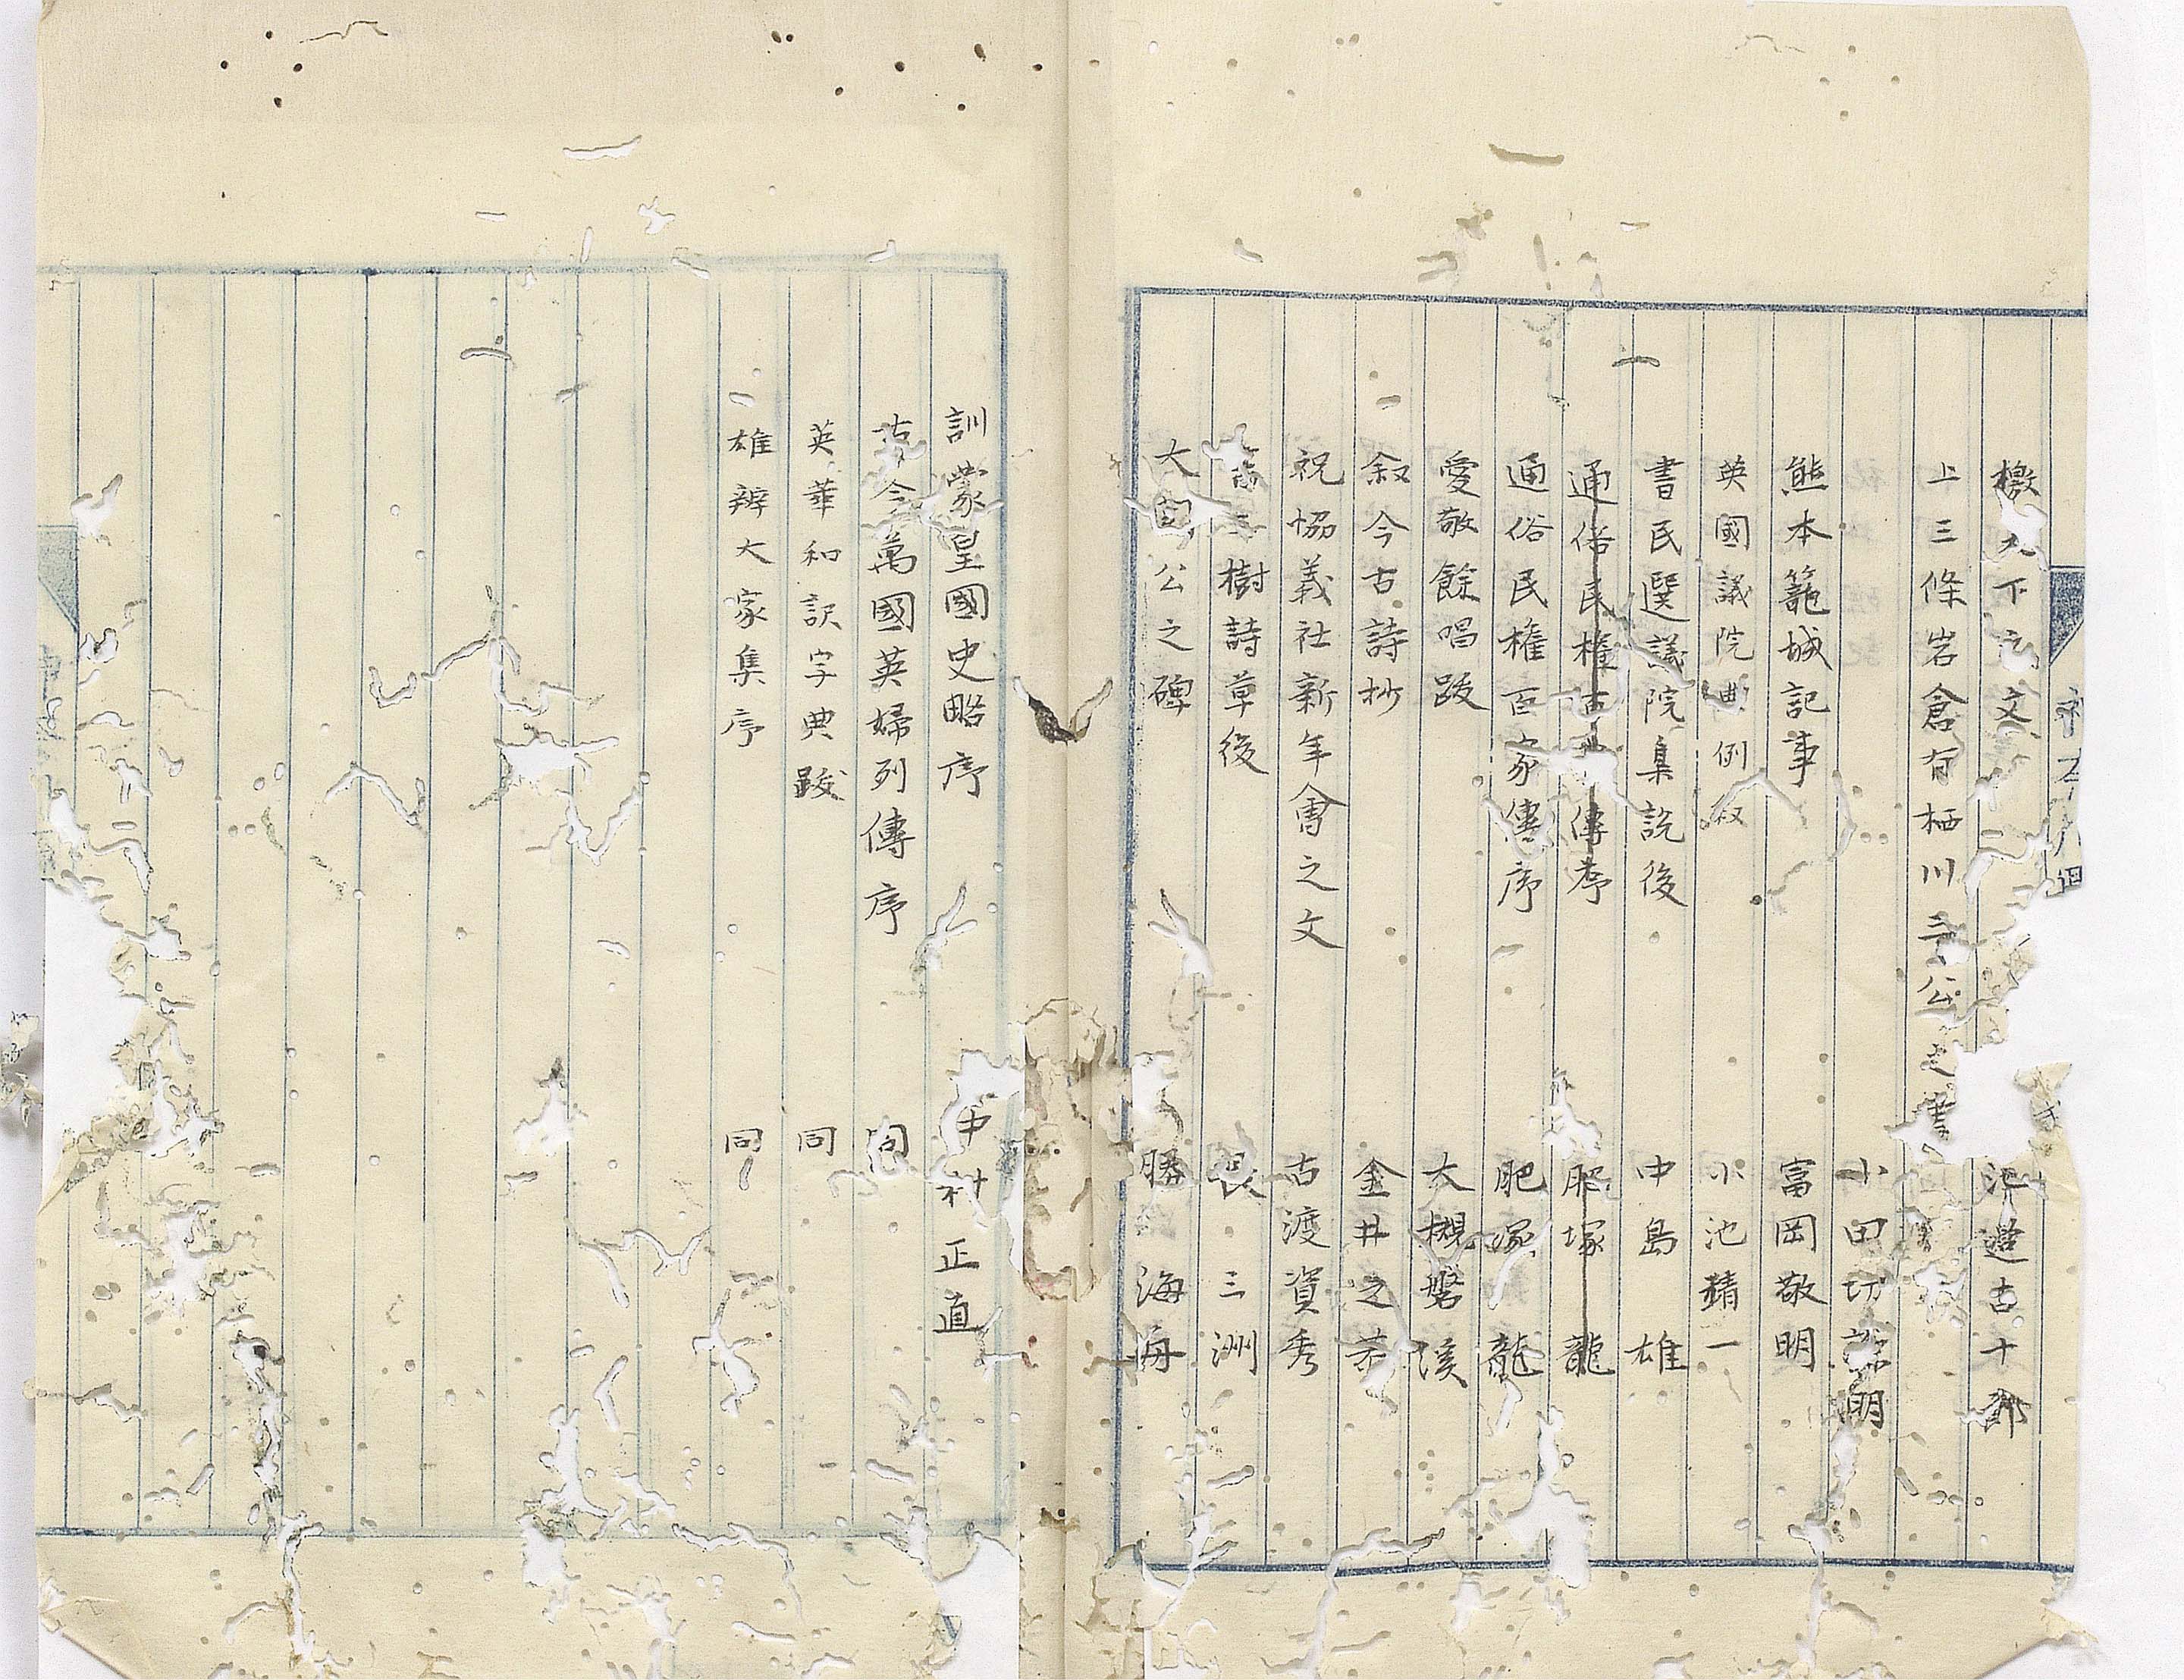 檄天下之文 池邉吉十郎
上三條岩倉有栖川三公之書
小田切 明
熊本籠城記事 富岡敬明
英國議院典例叙 小池精一
書民選議院集説後 中島 雄
通俗民權百 傳序 肥塚 龍
通俗民權百家傳序 肥塚 龍
愛敬餘唱跋 大槻磐溪
叙今古詩抄 金井之恭
祝協義社新年會之文 古渡資秀
樹詩草後 長 三洲
大 公之碑 勝 海舟
訓蒙皇國史略序 中村正直
古今萬國英婦列傳序 同
英華和訳字典跋 同
雄辨大家集序 同